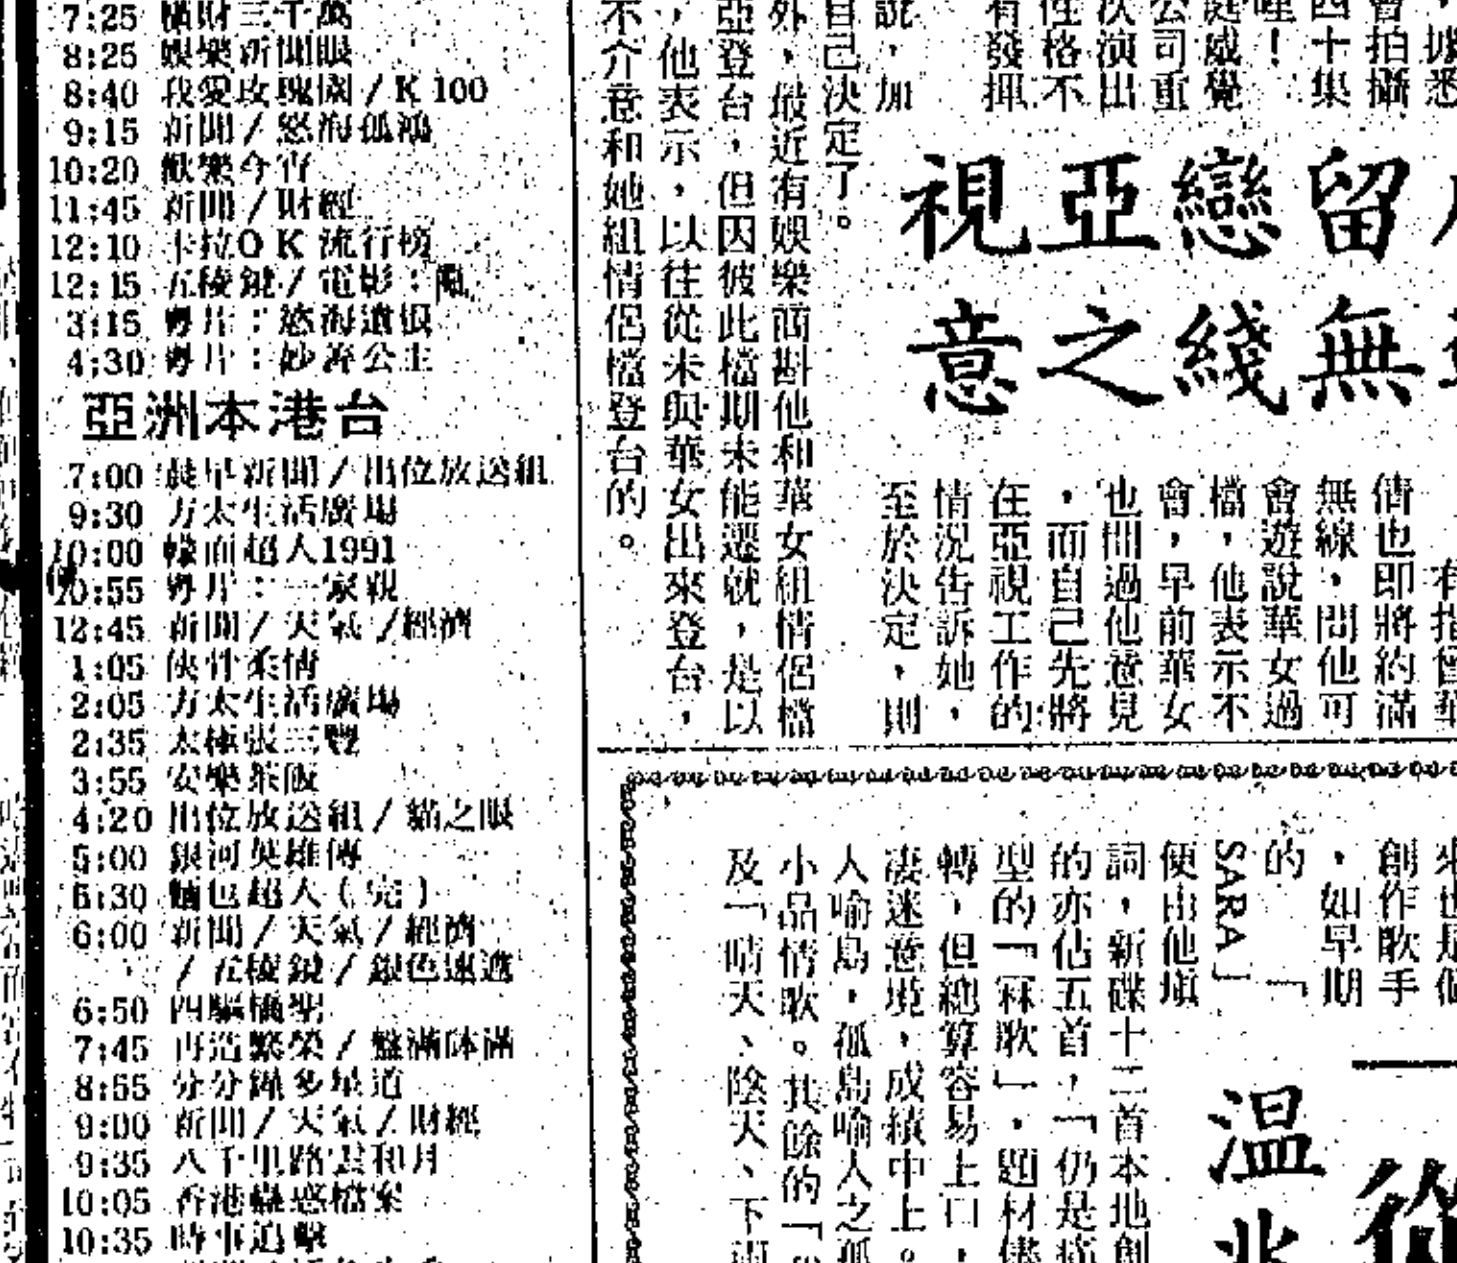 7:25 橫財三千萬
8:25 娛樂新聞眼
8:40 我愛玫瑰園/K100
9:15 新聞/怒海孤鴻
10:20 歡樂今宵
11:45 新聞/財經
12:10 卡拉OK流行榜
12:15 五稜鏡/電影:
3:15 粵片:慾海遺恨
4:30 粵片:妙善公主
亞洲本港台
7:00 晨早新聞/出位放送組
9:30 方太生活廣場
10:00 幪面超人1991
10:55 粵片:一家親
12:45 新聞/天氣/經濟
1:05 俠骨柔情
2:05 方太生活廣場
2:35 太極張三豐
3:55 安樂茶飯
4:20 出位放送組/貓之眼
5:00 銀河英雄傳
5:30 麵包超人(完)
6:00 新聞/天氣/經濟
/五稜鏡/銀色速遞
6:50 四驅橋聖
7:45 再造繁榮/盤滿砵滿
8:55 分分鐘多星道
9:00 新聞/天氣/財經
9:35 八千里路雲和月
10:05 香港蠱惑檔案
10:35 時事追擊
,據悉
會拍攝
四十集
哩!
庭感覺
公司重
次演出
性格不
有發揮
說,加
自己決定了。
外,最近有娛樂商斟他和華女組情侶檔
亞登台,但因彼此檔期未能遷就,是以
,他表示,以往從未與華女出來登台,
不介意和她組情侶檔登台的。
留戀亞視
無綫之意
倩也即將約滿
無線,問他可
會遊說華女過
檔,他表示不
會,早前華女
也問過他意見
,而自己先將
在亞視工作的
情況告訴她,
至於決定,則
來也是個
創作歌手
,如早期
的「
SARA」
便由他塡
詞,新碟十二首本地創
的亦佔五首,「仍是痛
型的「冧歌」,題材儘
轉,但總算容易上口,
淒迷意境,成績中上。
人喻島,孤島喻人之孤
小品情歌。其餘的「
及「晴天、陰天、下雨
溫兆
從